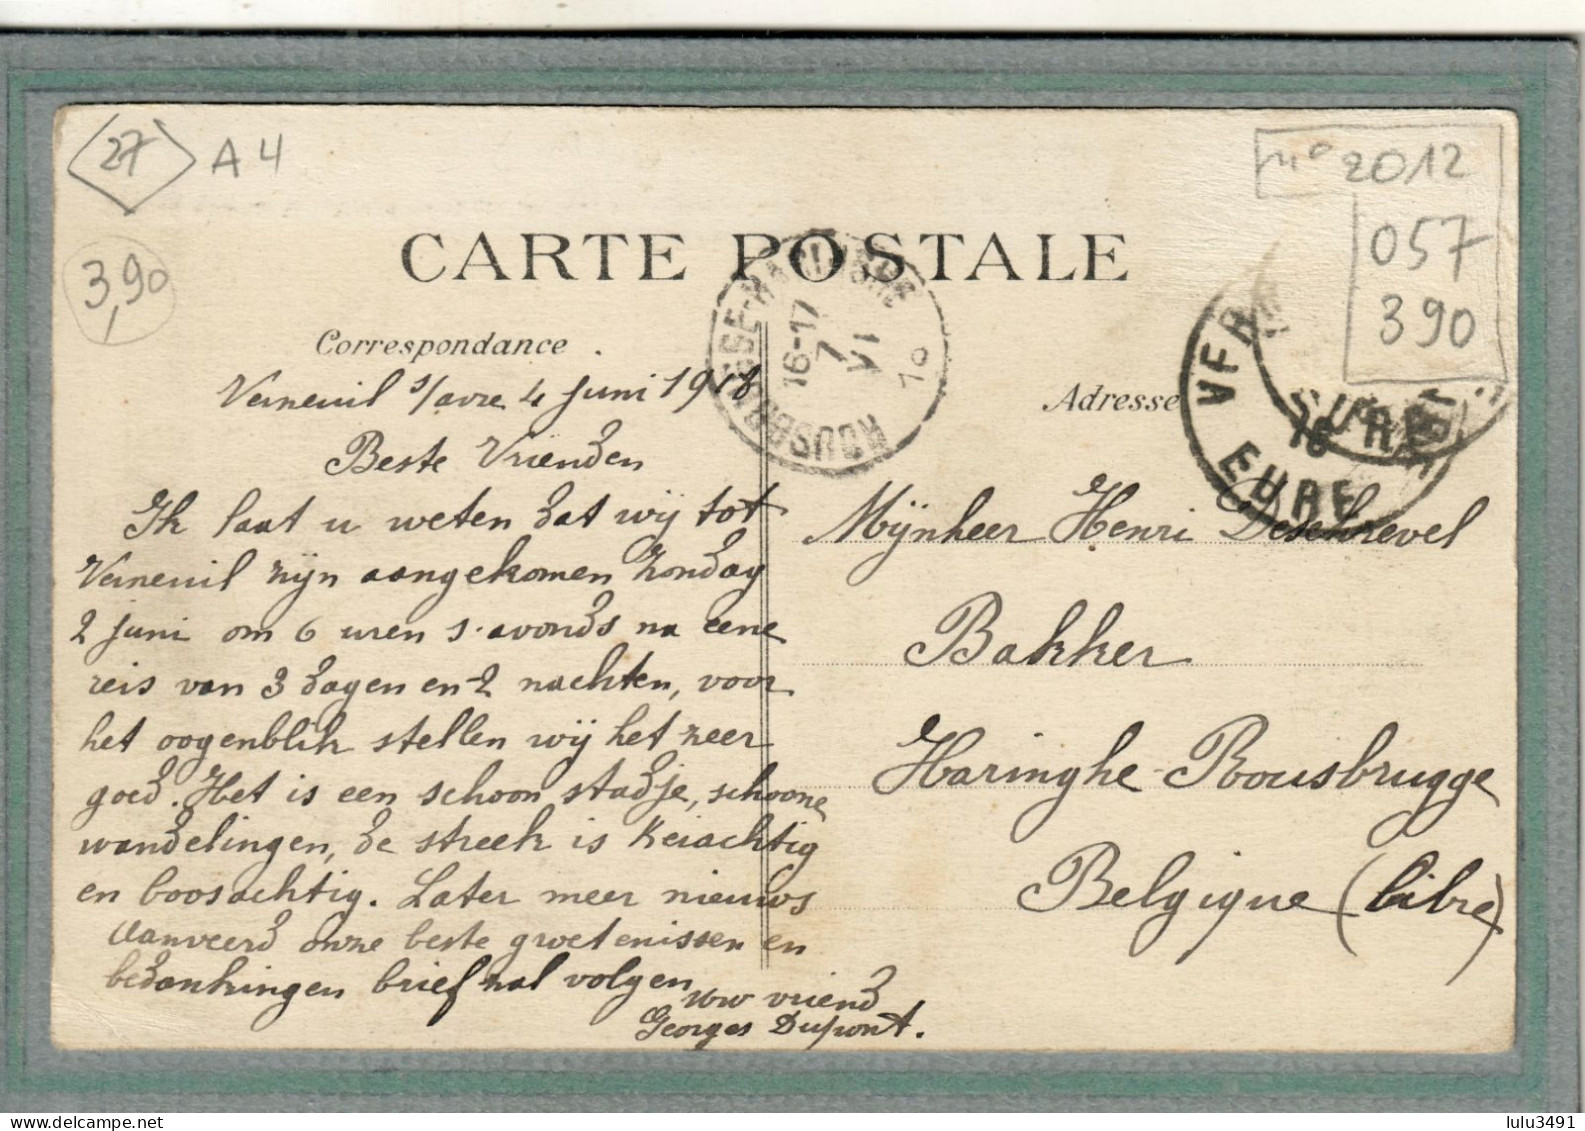 27 A4
3,90
n° 2012
057
390
CARTE POSTALE
16-17
7
VI
EURE
Correspondance
Adresse
Verneuil s/avre 4 Juni 1918
Beste Vrienden
Ik laat u weten dat wij tot
Verneuil zijn aangekomen Zondag
2 Juni om 6 uren s. avonds na eene
reis van 3 dagen en 2 nachten, voor
het oogenblik stellen wij het zeer
goed. Het is een schoon stadje, schoone
wandelingen, de streek is Keiachtig
en boosachtig. Later meer nieuws
Aanveerd onze beste groetenissen en
bedankingen brief zal volgen
Uw vriend
Georges Dupont.
Mijnheer Henri Deschrevel
Bakker
Haringhe-Rousbrugge
Belgique (Libre)
lulu3491